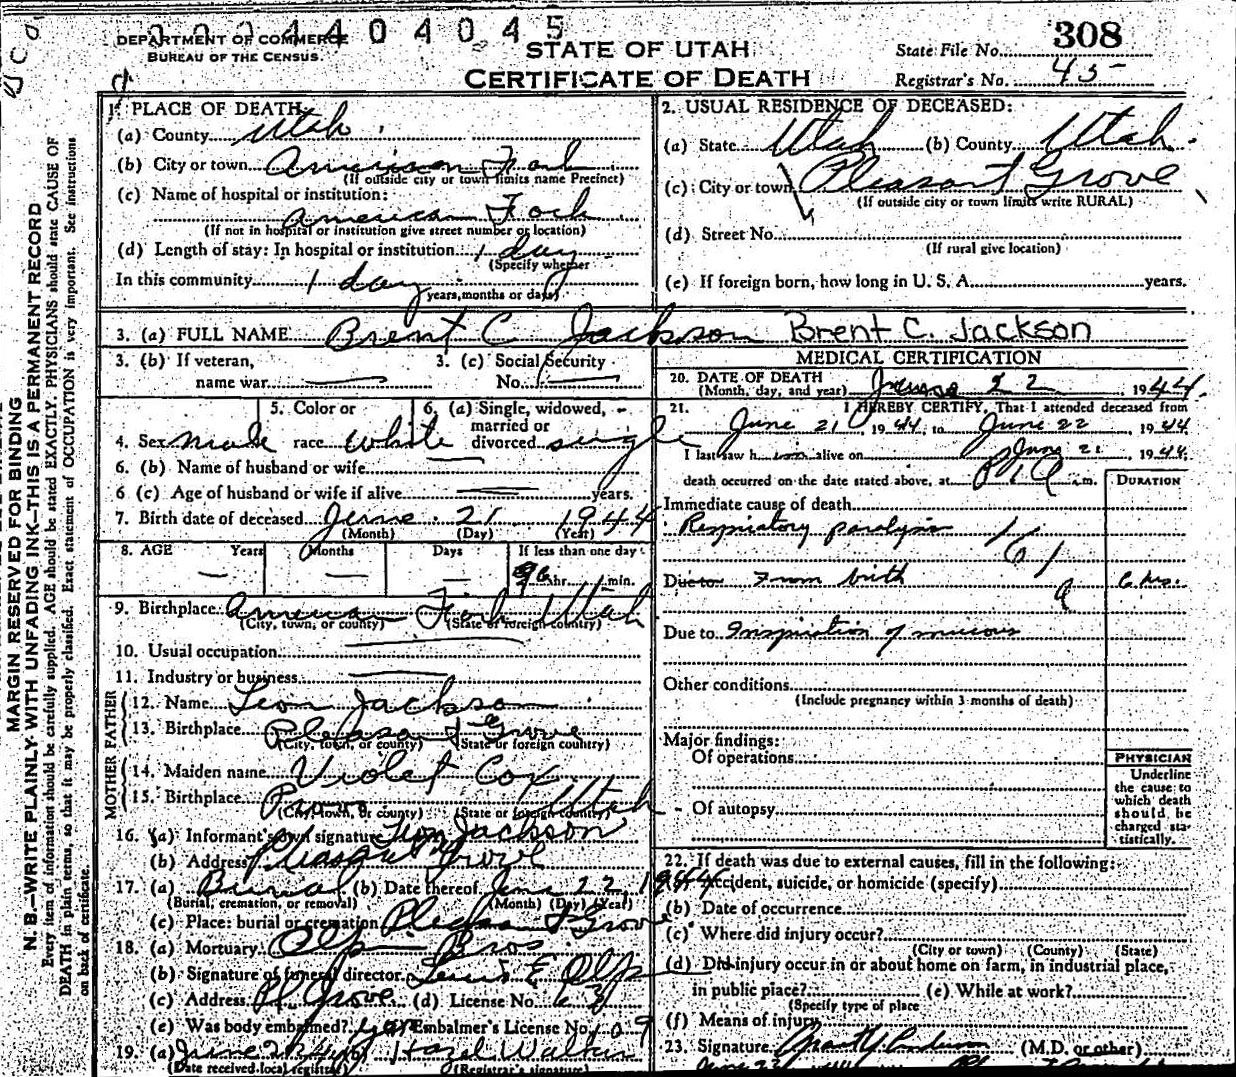 0004404045
DEPARTMENT OF COMMERCE
BUREAU OF THE CENSUS.
STATE OF UTAH
CERTIFICATE OF DEATH
State File No. 308
Registrar's No. 45
MARGIN RESERVED FOR BINDING
N. B.—WRITE PLAINLY WITH UNFADING INK—THIS IS A PERMANENT RECORD
Every item of information should be carefully supplied. AGE should be stated EXACTLY. PHYSICIANS should state CAUSE OF
DEATH in plain terms, so that it may be properly classified. Exact statement of OCCUPATION is very important. See instructions
on back of certificate.
1. PLACE OF DEATH
(a) County Utah
(b) City or town American Fork
(If outside city or town limits name Precinct)
(c) Name of hospital or institution:
American Fork
(If not in hospital or institution give street number or location)
(d) Length of stay: In hospital or institution 1 day
(Specify whether
In this community 1 day
years, months or days)
2. USUAL RESIDENCE OF DECEASED:
(a) State Utah (b) County Utah
(c) City or town Pleasant Grove
(If outside city or town limits write RURAL)
(d) Street No.
(If rural give location)
(e) If foreign born, how long in U. S. A. years.
3. (a) FULL NAME Brent C Jackson Brent C. Jackson
3. (b) If veteran,
name war
3. (c) Social Security
No.
4. Sex male
5. Color or
race White
6. (a) Single, widowed,
married or
divorced single
6. (b) Name of husband or wife
6 (c) Age of husband or wife if alive years.
7. Birth date of deceased June 21 1944
(Month) (Day) (Year)
8. AGE Years Months Days If less than one day
hr. min.
9. Birthplace American Fork Utah
(City, town, or county) (State or foreign country)
10. Usual occupation
11. Industry or business
FATHER
12. Name Leon Jackson
13. Birthplace Pleasant Grove
(City, town, or county) (State or foreign country)
MOTHER
14. Maiden name Violet Cox
15. Birthplace Provo Utah
(City, town, or county) (State or foreign country)
16. (a) Informant's own signature Leon Jackson
(b) Address Pleasant Grove
17. (a) Burial (b) Date thereof June 22, 1944
(Burial, cremation, or removal) (Month) (Day) (Year)
(c) Place: burial or cremation Pleasant Grove
18. (a) Mortuary Olpin Bros
(b) Signature of funeral director Lewis E Olpin
(c) Address Pl Grove (d) License No. 
(e) Was body embalmed? yes Embalmer's License No. 109
19. (a) June 22 44 (b) Hazel Walker
(Date received local registrar) (Registrar's signature)
MEDICAL CERTIFICATION
20. DATE OF DEATH
(Month, day, and year) June 22 1944
21. I HEREBY CERTIFY, That I attended deceased from
June 21, 1944, to June 22, 1944
I last saw him alive on June 21, 1944
death occurred on the date stated above, at m.
DURATION
Immediate cause of death
Respiratory paralysis 161
Due to From birth a 6 hrs.
Due to Inspiration of mucous
Other conditions
(Include pregnancy within 3 months of death)
Major findings:
Of operations
Of autopsy
PHYSICIAN
Underline
the cause to
which death
should be
charged sta-
tistically.
22. If death was due to external causes, fill in the following:
(a) Accident, suicide, or homicide (specify)
(b) Date of occurrence
(c) Where did injury occur?
(City or town) (County) (State)
(d) Did injury occur in or about home on farm, in industrial place,
in public place? (e) While at work?
(Specify type of place
(f) Means of injury
23. Signature Grant Y Anderson (M.D. or other)